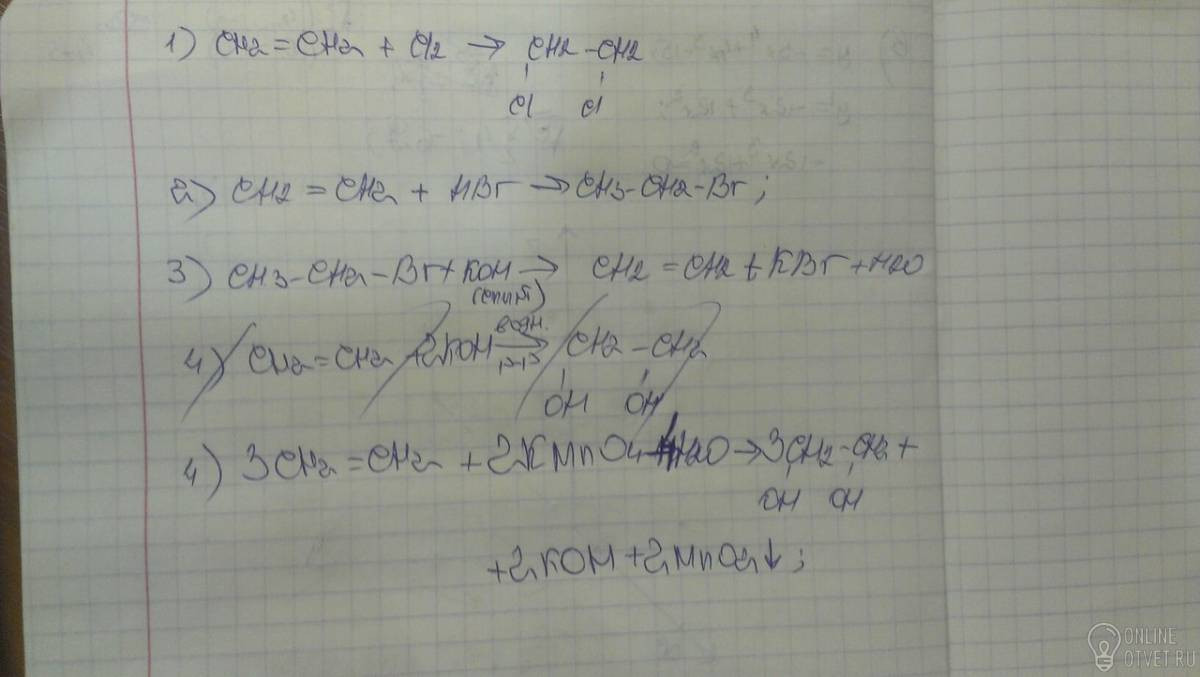 1) CH2=CH2 + Cl2 → CH2-CH2
Cl Cl
2) CH2 = CH2 + HBr → CH3-CH2-Br;
3) CH3-CH2-Br+KOH → CH2=CH2+KBr+H2O
(спирт)
водн.
4) CH2=CH2 +2KOH → CH2-CH2
р-р
OH OH
4) 3CH2=CH2 + 2KMnO4+4H2O → 3CH2-CH2+
OH OH
+2KOH+2MnO2↓;
ONLINE
OTVET.RU